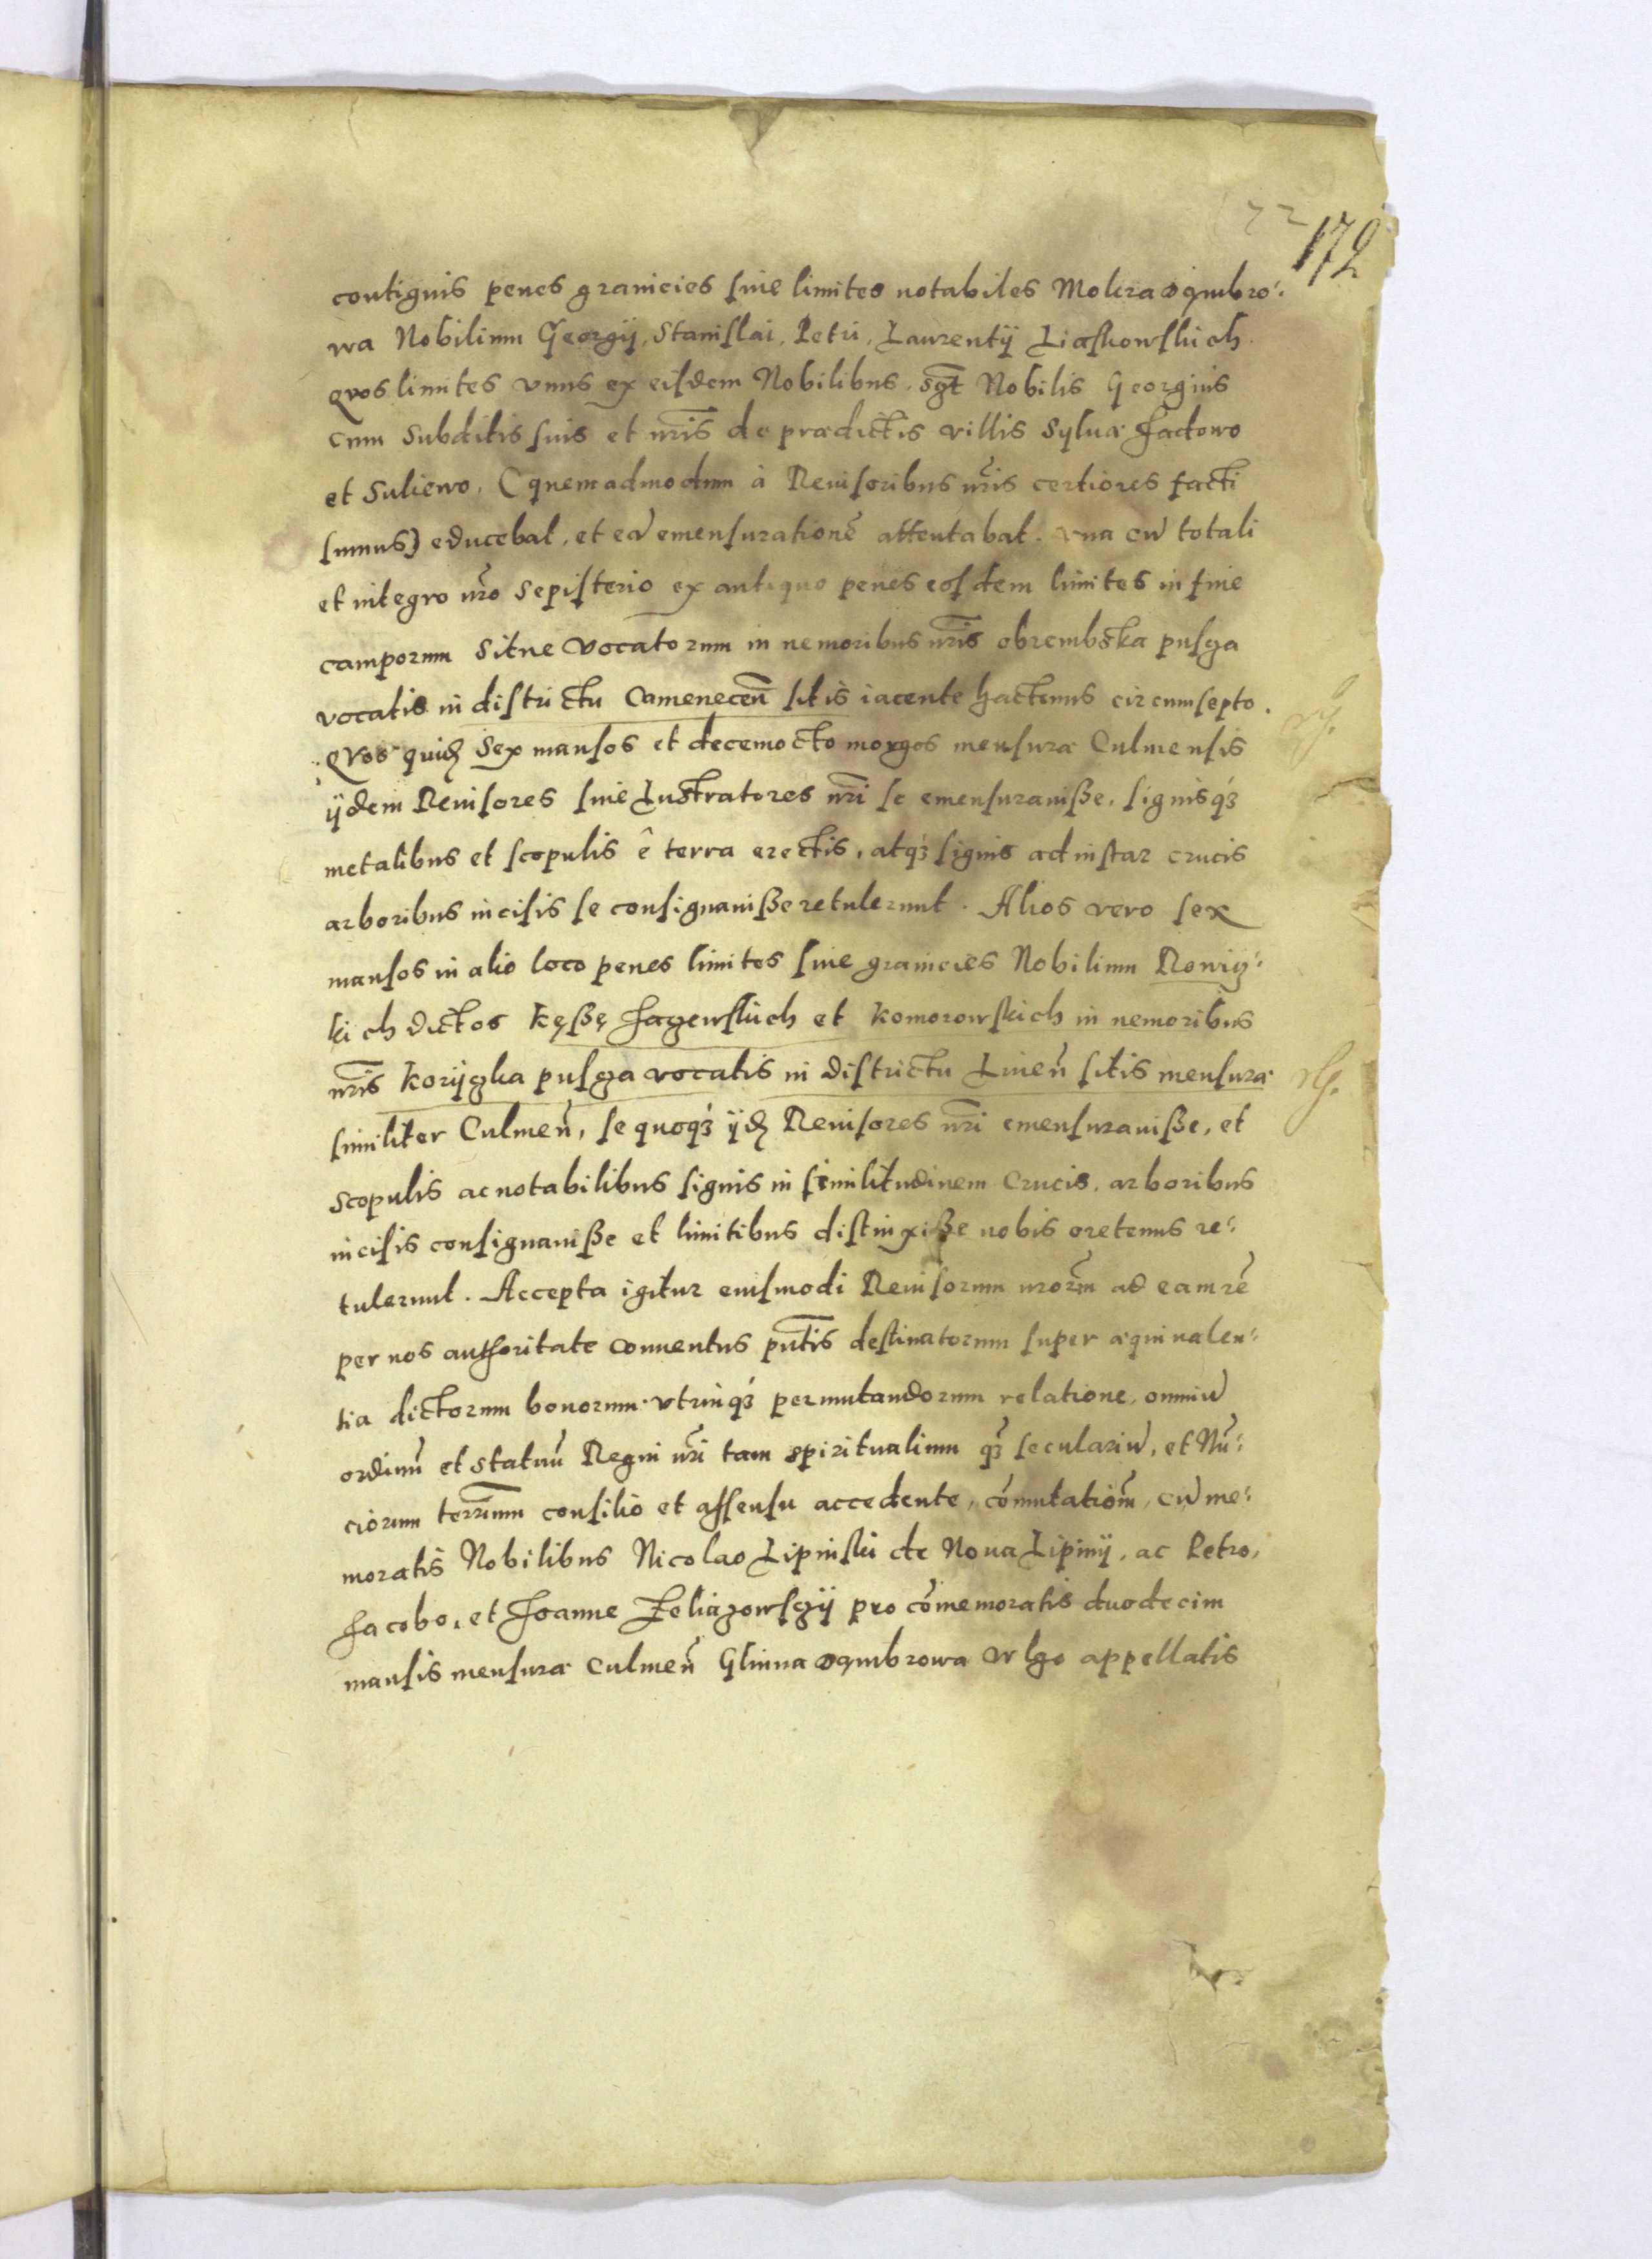 172
contiguis penes granicies siue limites notabiles Mokra dąmbro:
wa Nobilium Georgÿ, Stanislai, Petri, Laurentÿ Liaskowskich.
Qvos limites vnus ex eisdem Nobilibus, sct̃ Nobilis Georgius
cum Subditis suis et nr̃is de prædictis villis Sylua Jactowo
et Suliewo, (quemadmodum à Reuisoribus nr̃is certiores facti
sumus) educebat, et eã emensurationẽ attentabat. vna cũ totali
et integro nr̃o Sepisterio ex antiquo penes eosdem limites in fine
camporum Sitne vocatorum in nemoribus nr̃is obrembska pusza
vocatis in districtu Camenecen̄ sitis iacente hactenus circumsepto.
Qvos quidẽ Sex mansos et decemocto morgos mensuræ Culmensis
ÿdem Reuisores siue Lustratores nr̃i se emensurauisse, signisq̃
metalibus et scopulis ê terra erectis, atq̃ signis ad instar crucis
arboribus incisis se consignauisse retulerunt. Alios vero sex
mansos in alio loco penes limites siue granicies Nobilium Rowiz:
kich dictos Kęsßę Jagewskich et Komorowskich in nemoribus
nr̃is Korÿczka pusza vocatis in districtu Liuen̄ sitis mensuræ
similiter Culmen̄, se quoq̃ ÿdẽ Reuisores nr̃i emensurauisse, et
scopulis ac notabilibus signis in similitudinem Crucis, arboribus
incisis consignauisse et limitibus distinxisse nobis oretenus re:
tulerunt. Accepta igitur eiusmodi Reuisorum nror̃m ad eam rẽ
per nos authoritate conuentus pñtis destinatorum super æquiualen:
tia dictorum bonorum vtrinq̃ permutandorum relatione, omniũ
ordinũ et statuũ Regni nr̃i tam spiritualium q̃ seculariũ, et Nũ:
ciorum terr̃rum consilio et assensu accedente, cõmutatioñm, cũ me:
moratis Nobilibus Nicolao Lipinski de Noua Lipinÿ, ac Petro,
Jacobo, et Joanne Zeliazowsczÿ pro cõmemoratis duodecim
mansis mensuræ Culmen̄ Glinna dąmbrowa vulgo appellatis